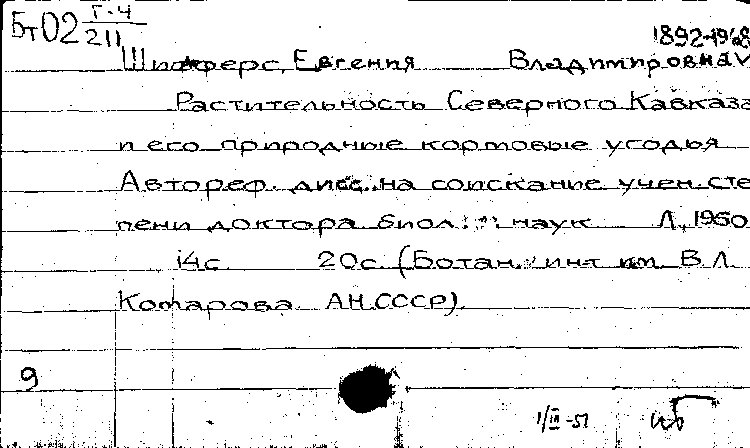 Бт02 Г-4/211
1892-1968
Шифферс, Евгения Владимировна
Растительность Северного Кавказа
и его природные кормовые угодья
Автореф. дисс. на соискание учен. сте
пени доктора биол. наук Л, 1950
14с 20с. (Ботан. инт им В Л
Комарова АН СССР).
9
1/III-51